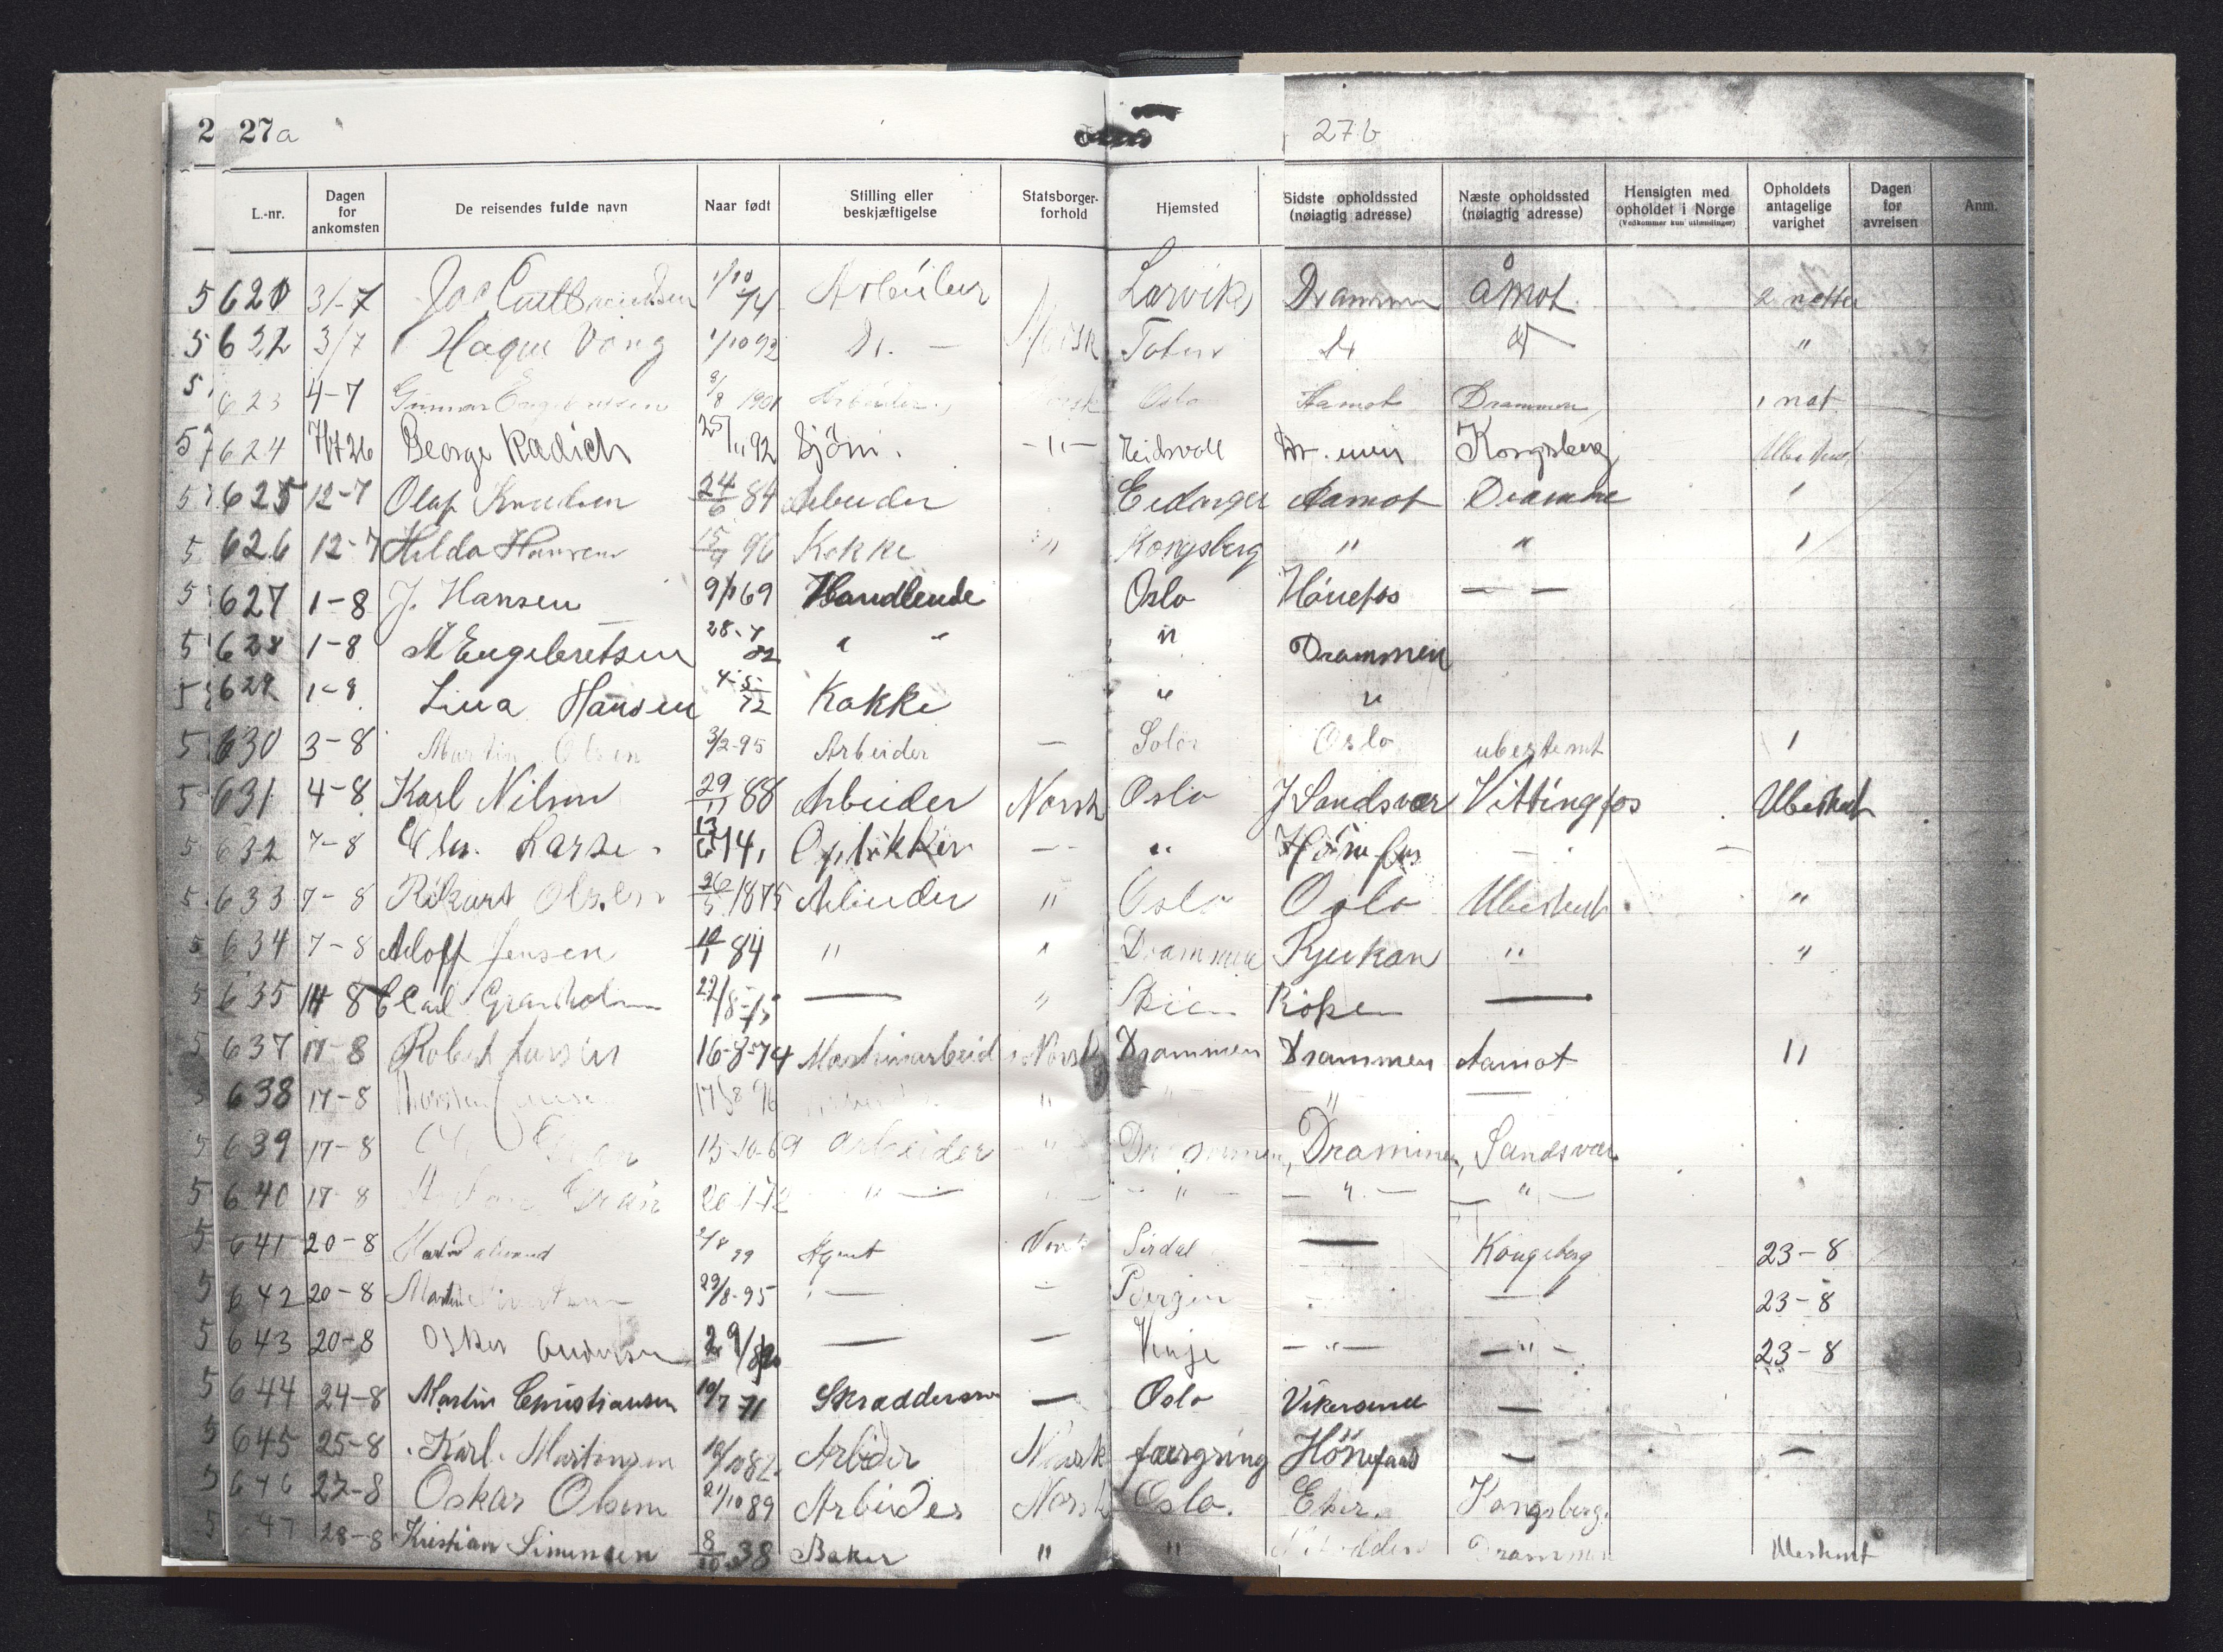 2 27a 27b
L.-nr. Dagen for ankomsten De reisendes fulde navn Naar født Stilling eller beskjæftigelse Statsborger-forhold Hjemsted Sidste opholdssted (nøiagtig adresse) Næste opholdssted (nøiagtig adresse) Hensigten med opholdet i Norge (Vedkommer kun utlændinger) Opholdets antagelige varighet Dagen for avreisen Anm.
5 620 31-7 1/10 74 Arbeider Larvik Drammen Åmot 2 netter
5 622 3/7 Haque Vang 1/10 92 Do. — Norsk Toten Do "
5 623 4-7 Gunnar Engebretsen 8/8 1901 Arbeider Norsk Oslo Aamot Drammen 1 nat
5 624 7/7 26 George Radich 25/11 92 Sjøm. -"- Eidsvoll Dr.men Kongsberg Ubestemt
5 625 12-7 Olaf Knudsen 24/6 84 Arbeider Eidanger Aamot Dramme 1
5 626 12-7 Hilda Hansen 15/4 96 Kokke " Kongsberg " " 1
5 627 1-8 J. Hansen 69 Handlende Oslo Hönefos — —
5 628 1-8 M Engebretsen 28-7 82 " " " Drammen
5 629 1-8 Lina Hansen 4-5-72 Kokke " "
5 630 3-8 Martin Olsen 3/2-95 Arbeider — Solør Oslo ubestemt 1
5 631 4-8 Karl Nilsen 29/11 88 Arbeider Norsk Oslo J Sandsvær Vittingfos Ubestemt
5 632 7-8 Chr. Larse. 13/6 74, Optikker — " Hönefos — —
5 633 7-8 Rikart Olsen 26/5 1875 Arbeider " Oslo Oslo Ubestemt "
5 634 7-8 Adolf Jensen 84 " " Drammen Rjukan " "
5 635 14 8 Carl Granholm 22/8-75 — " Skien Röken —
5 637 17-8 Robert Larsen 16-8-74 Maskinarbeid Norsk Drammen Drammen Aamot "
5 638 17-8 17/8 96 " " " —
5 639 17-8 15-10-69 arbeider " Drammen, Drammen, Sandsvær
5 640 17-8 20-1-72 " — " — " — — " — — " —
5 641 20-8 99 Agent Norsk Sirdal — Kongsberg 23-8
5 642 20-8 Martin 29/8-95 — — Bergen — 23-8
5 643 20-8 Osker Andersen — — Vinje — " — — " — 23-8
5 644 24-8 Martin Christiansen 10/7 71 Skræddersv — Oslo Vikersund —
5 645 25-8 Karl. Martinsen 10/10 82. Arbider Norsk Hönefoss — —
5 646 27-8 Oskar Olsen 21/10 89 Arbeider Norsk Oslo. Eker. Kongsberg.
5 47 28-8 Kristian Simensen 8/10 38 Baker " " Notodden Drammen Ubestemt